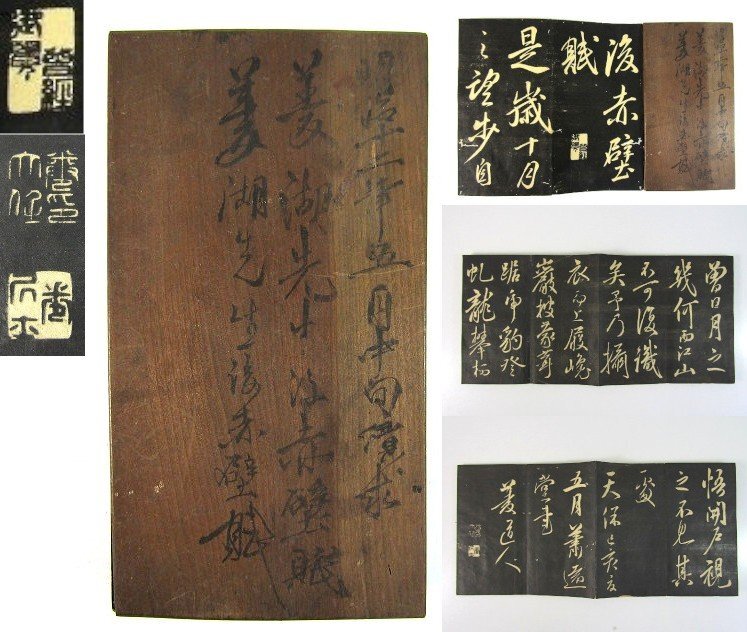 昭和十二年五月中旬購求
菱湖先生後赤壁賦
菱湖先生後赤壁賦
後赤壁
賦
是歲十月
之望步自
曾日月之
幾何而江山
不可復識
矣予乃攝
衣而上履巉
巖披蒙茸
踞虎豹登
虬龍攀栖
悟開戶視
之不見其
處
天保己亥夏
五月蕭遠
堂書
菱道人